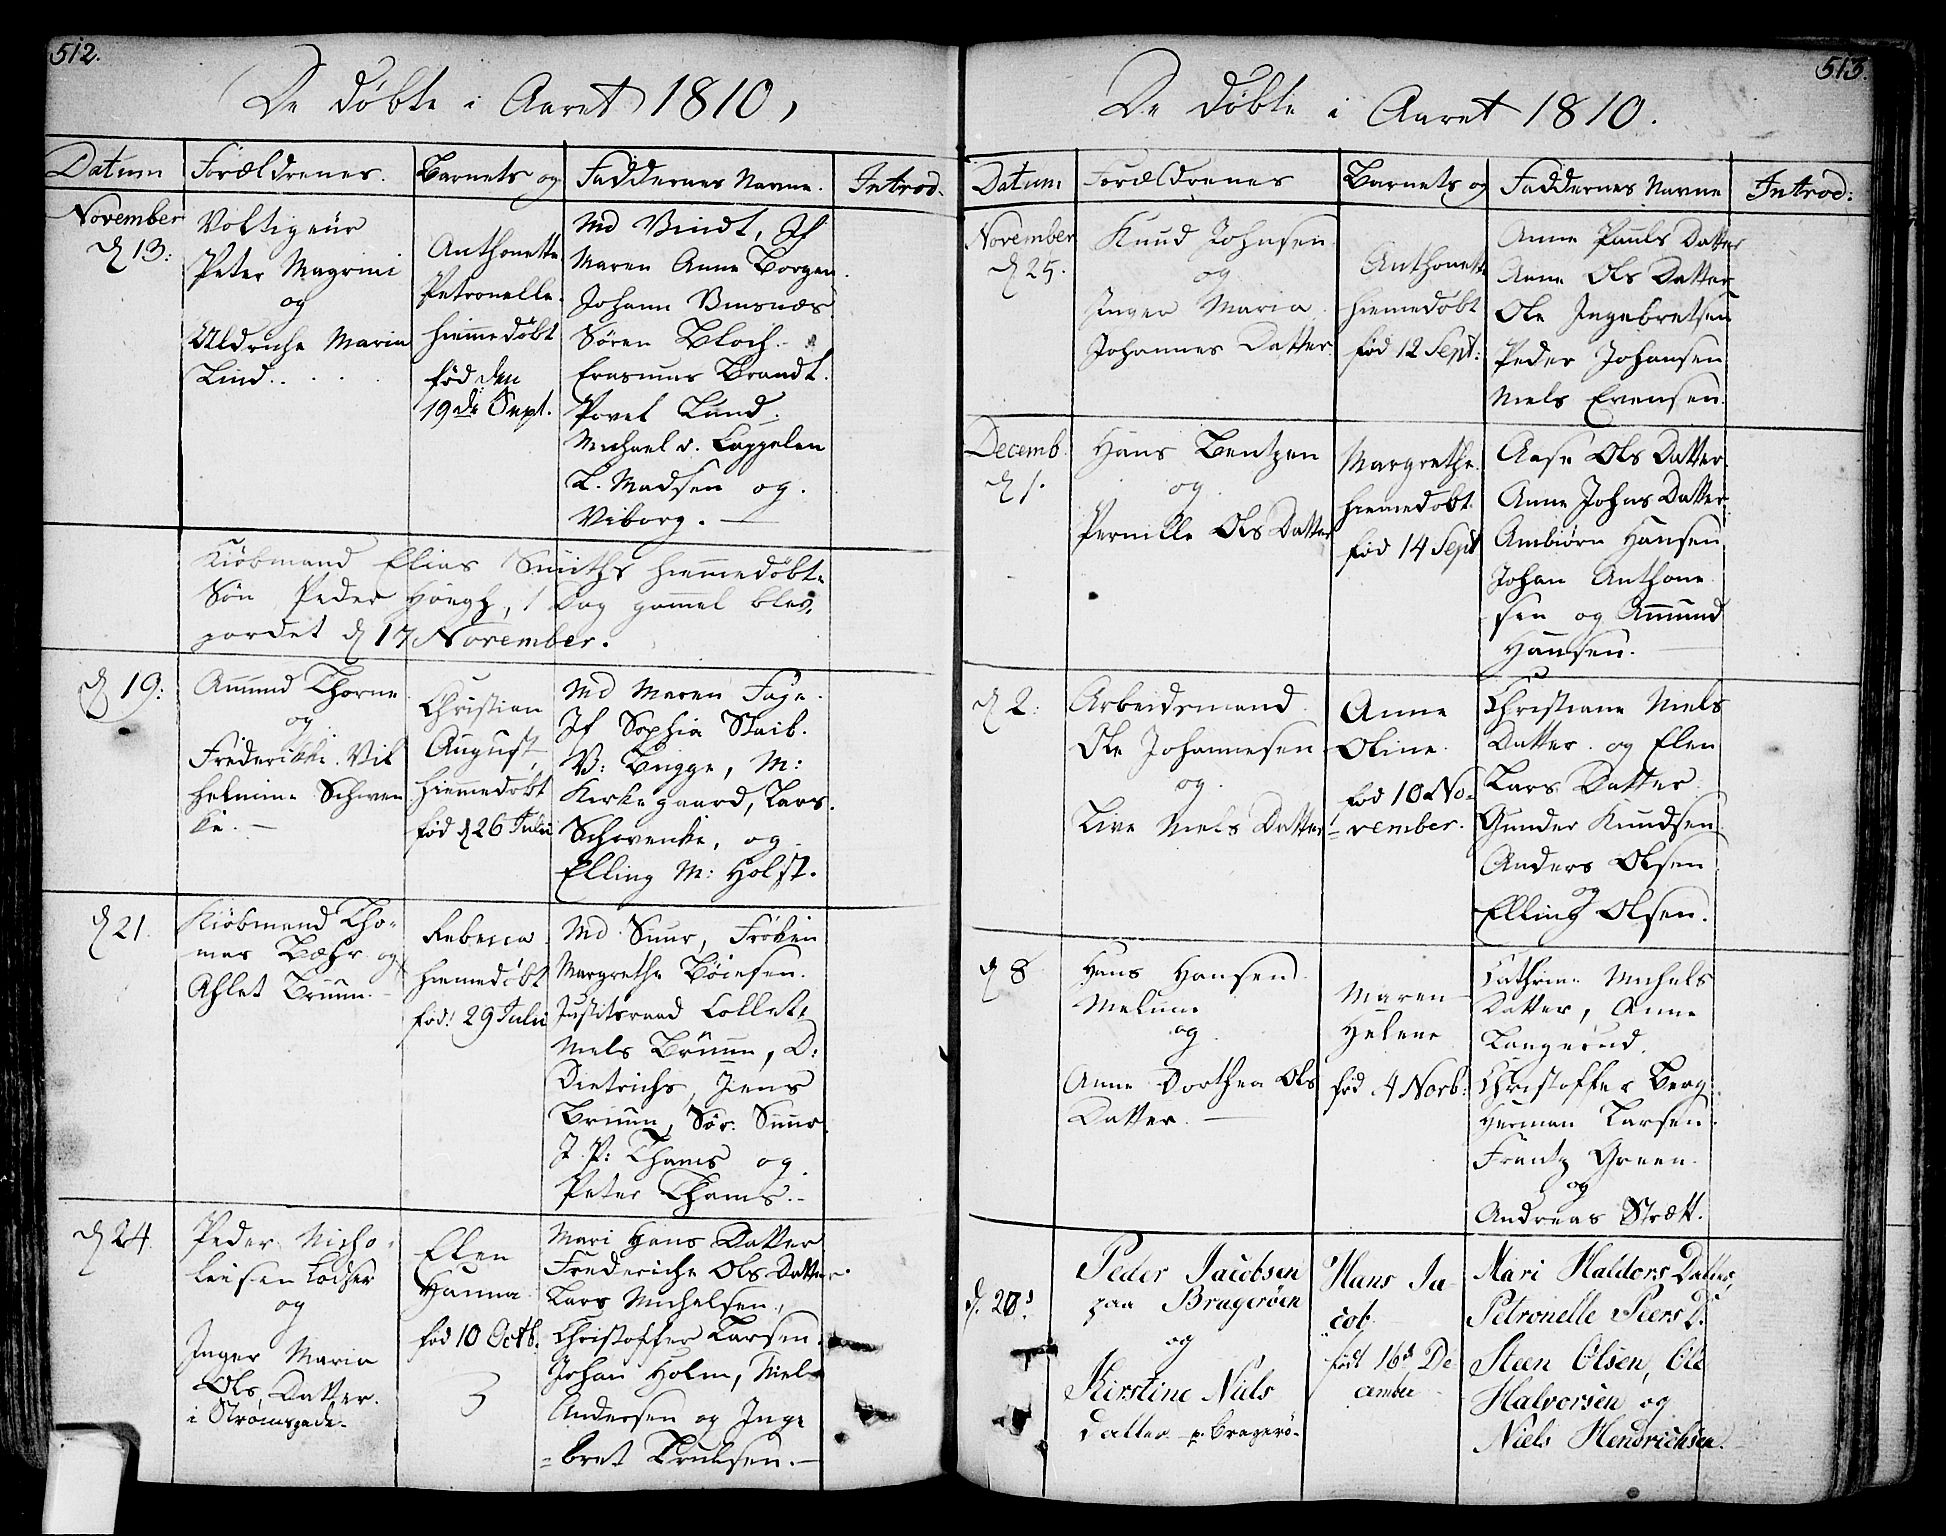 512.
De døbte i Aaret 1810,
Datum Forældrenes. Barnets og Faddernes Navne. Introd.
November
d 13:
Voltigeur
Peter Magrini
og
Uldriche Maria
Lind.
Anthonette
Petronelle.
hiemmedøbt
fød den
19de Sept.
Md Vindt, Jf
Maren Anne Borgen.
Johann
Søren Bloch.
Erasmus Brandt.
Povel Lund.
Michael v. Cappelen
L. Madsen og.
Viborg.
Kiøbmand Elias Smiths hiemmedøbte
Søn Peder Høegh, 1 Dag gammel blev
jordet d 17 November.
d 19:
Amund Thorne
og
Frederikke Vil
helmine Schwen
ke.
Christian
August,
hiemmedøbt
fød d 26 Julii
Md Maren Faye.
Jf Sophia Staib.
B: Brigge, M:
Kirkegaard, Lars
Schwenke, og
Elling M: Holst.
d 21.
Kiøbmand Tho-
mas Bæhr og
Ahlet Bruun.
Rebecca
hiemmedøbt
fød: 29 Julii
Md. Suur, Frøken
Margrethe Bøiesen.
Justitsraad Collet,
Niels Bruun, D:
Dietrichs, Jens
Bruun, Sør. Suur.
J. P: Thams og
Peter Thams.
d 24.
Peder Micho-
leusen Lodser
og
Inger Maria
Ols Datter.
i Strømsgade.
Elen
Hanna
fød 10 Octb.
3
Mari Hans Datter
Frederiche Ols Datter.
Lars Michelsen,
Christoffer Larsen.
Johan Holm, Niels
Andersen og Inge
=bret Truelsen.
513.
De døbte i Aaret 1810.
Datum Forældrenes Barnets og Faddernes Navne Introd:
November
d 25.
Knud Johnsen
og
Inger Maria
Johannes Datter
Anthonette
hiemmedøbt
fød 12 Sept:
Anne Pauls Datter
Anne Ols Datter
Ole Ingebretsen
Peder Johansen
Niels Evensen.
Decemb.
d 1.
Hans Bentzen
og
Pernille Ols Datter
Margrethe
hiemmedøbt.
fød 14 Sept
Aase Ols Datter.
Anne Johns Datter.
Ambiørn Hansen
Johan Anthone
sen og Amund
Hansen.
d 2.
Arbeidsmand
Ole Johannesen
og.
Live Niels Datter
Anne
Oline.
fød 10 No-
=vember.
Christiane Niels
Datter. og Elen
Lars Datter.
Gunder Knudsen
Anders Olsen
og
Elling Olsen.
d 8
Hans Hansen
Melum
og
Anne Dorthea Ols
Datter.
Maren
Helene
fød 4 Novb:
Cathrine Michels
Datter, Anne
Langerud.
Christoffer Berg.
Herman Larsen.
Frantz Green.
og
Andreas Strøtt.
d. 26:
Peder Jacobsen
paa Bragerøen
og
Kirstine Niels
datter p. Bragerø.
Hans Ja-
cob.
født 16d De
cember
Mari Haldors Datter,
Petronelle Peers D.
Steen Olsen, Ole
Halvorsen og
Niels Hendrichsen.